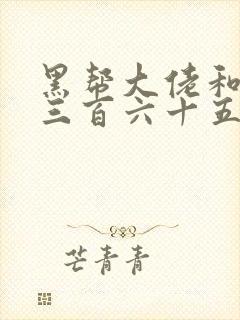 黑帮大佬和
三百六十五
芒青青